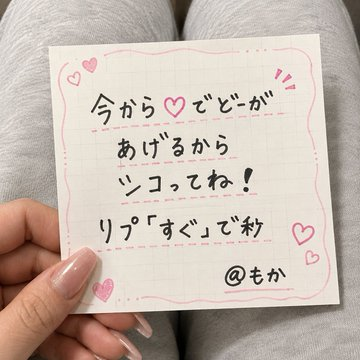 今から♡でどーが
あげるから
シコってね!
リプ「すぐ」で秒
@もか